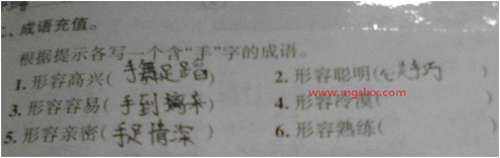 、成语充值。
根据提示各写一个含“手”字的成语。
1. 形容高兴(手舞足蹈) 2. 形容聪明(心灵手巧)
3. 形容容易(手到擒来) 4. 形容冷漠( )
5. 形容亲密(手足情深) 6. 形容熟练( )